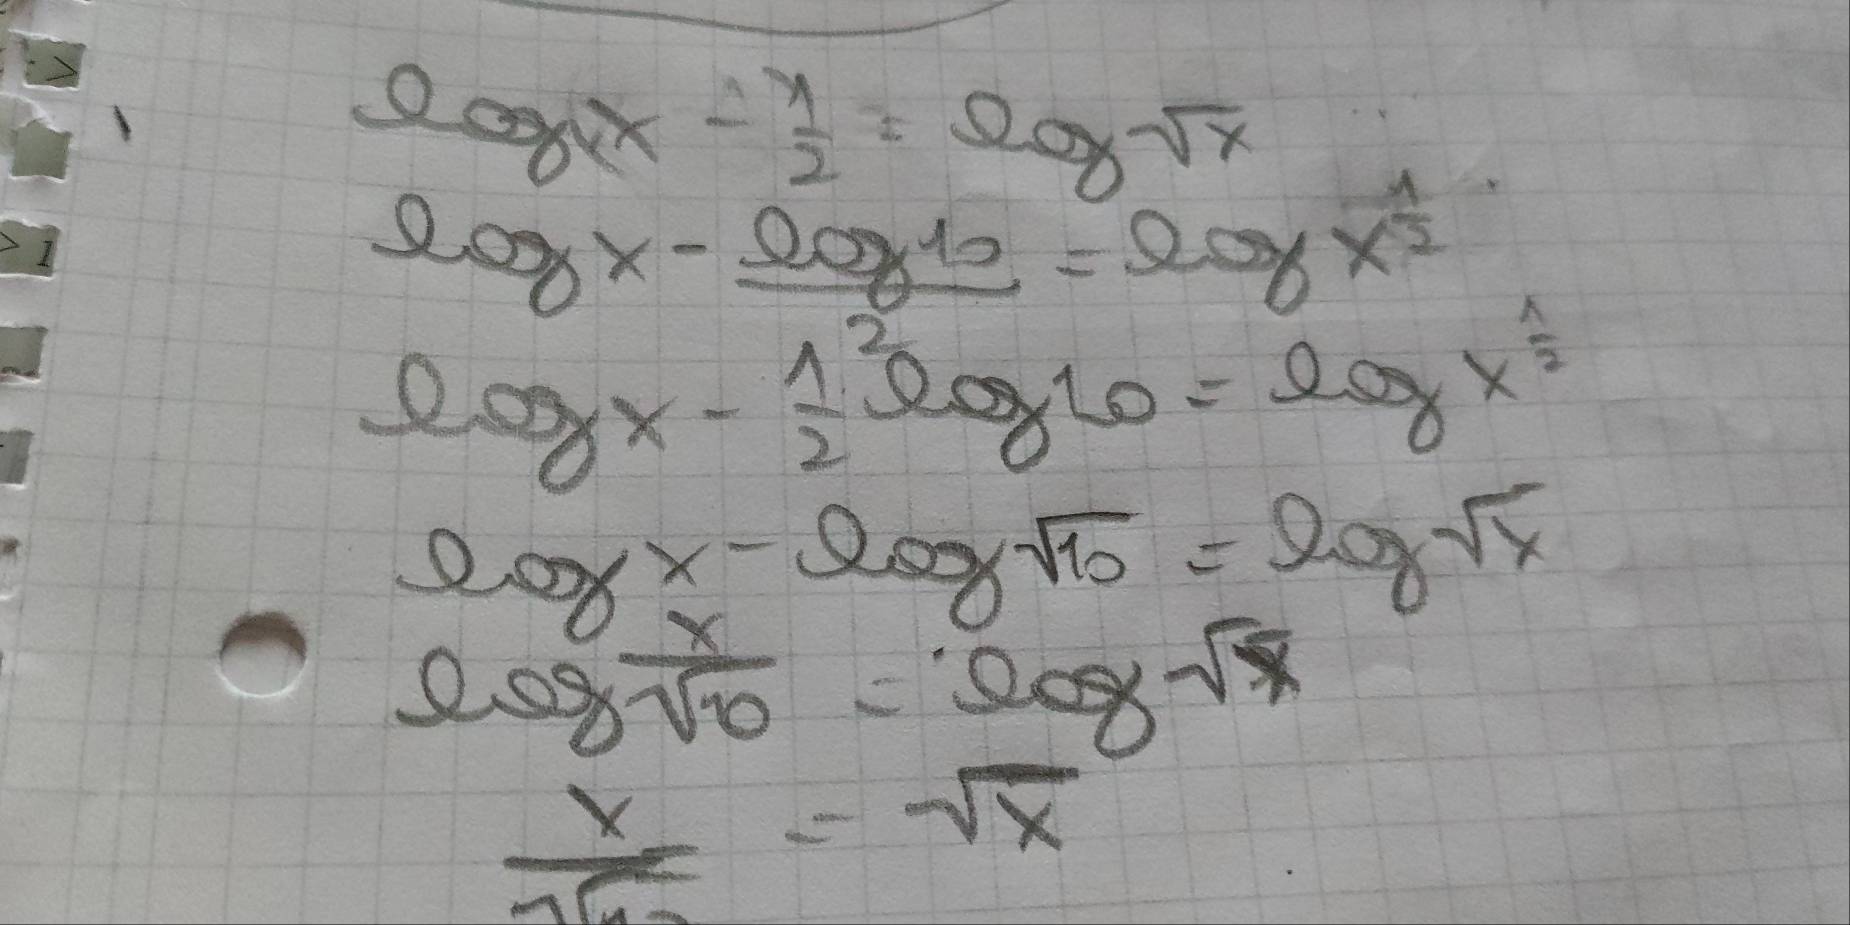 log x - 1/2 = log √x
log x - log10/2 = log x^1/2
log x - 1/2 log10 = log x^1/2
log x - log √10 = log √x
log x/√10 = log √x
x/√10 = √x